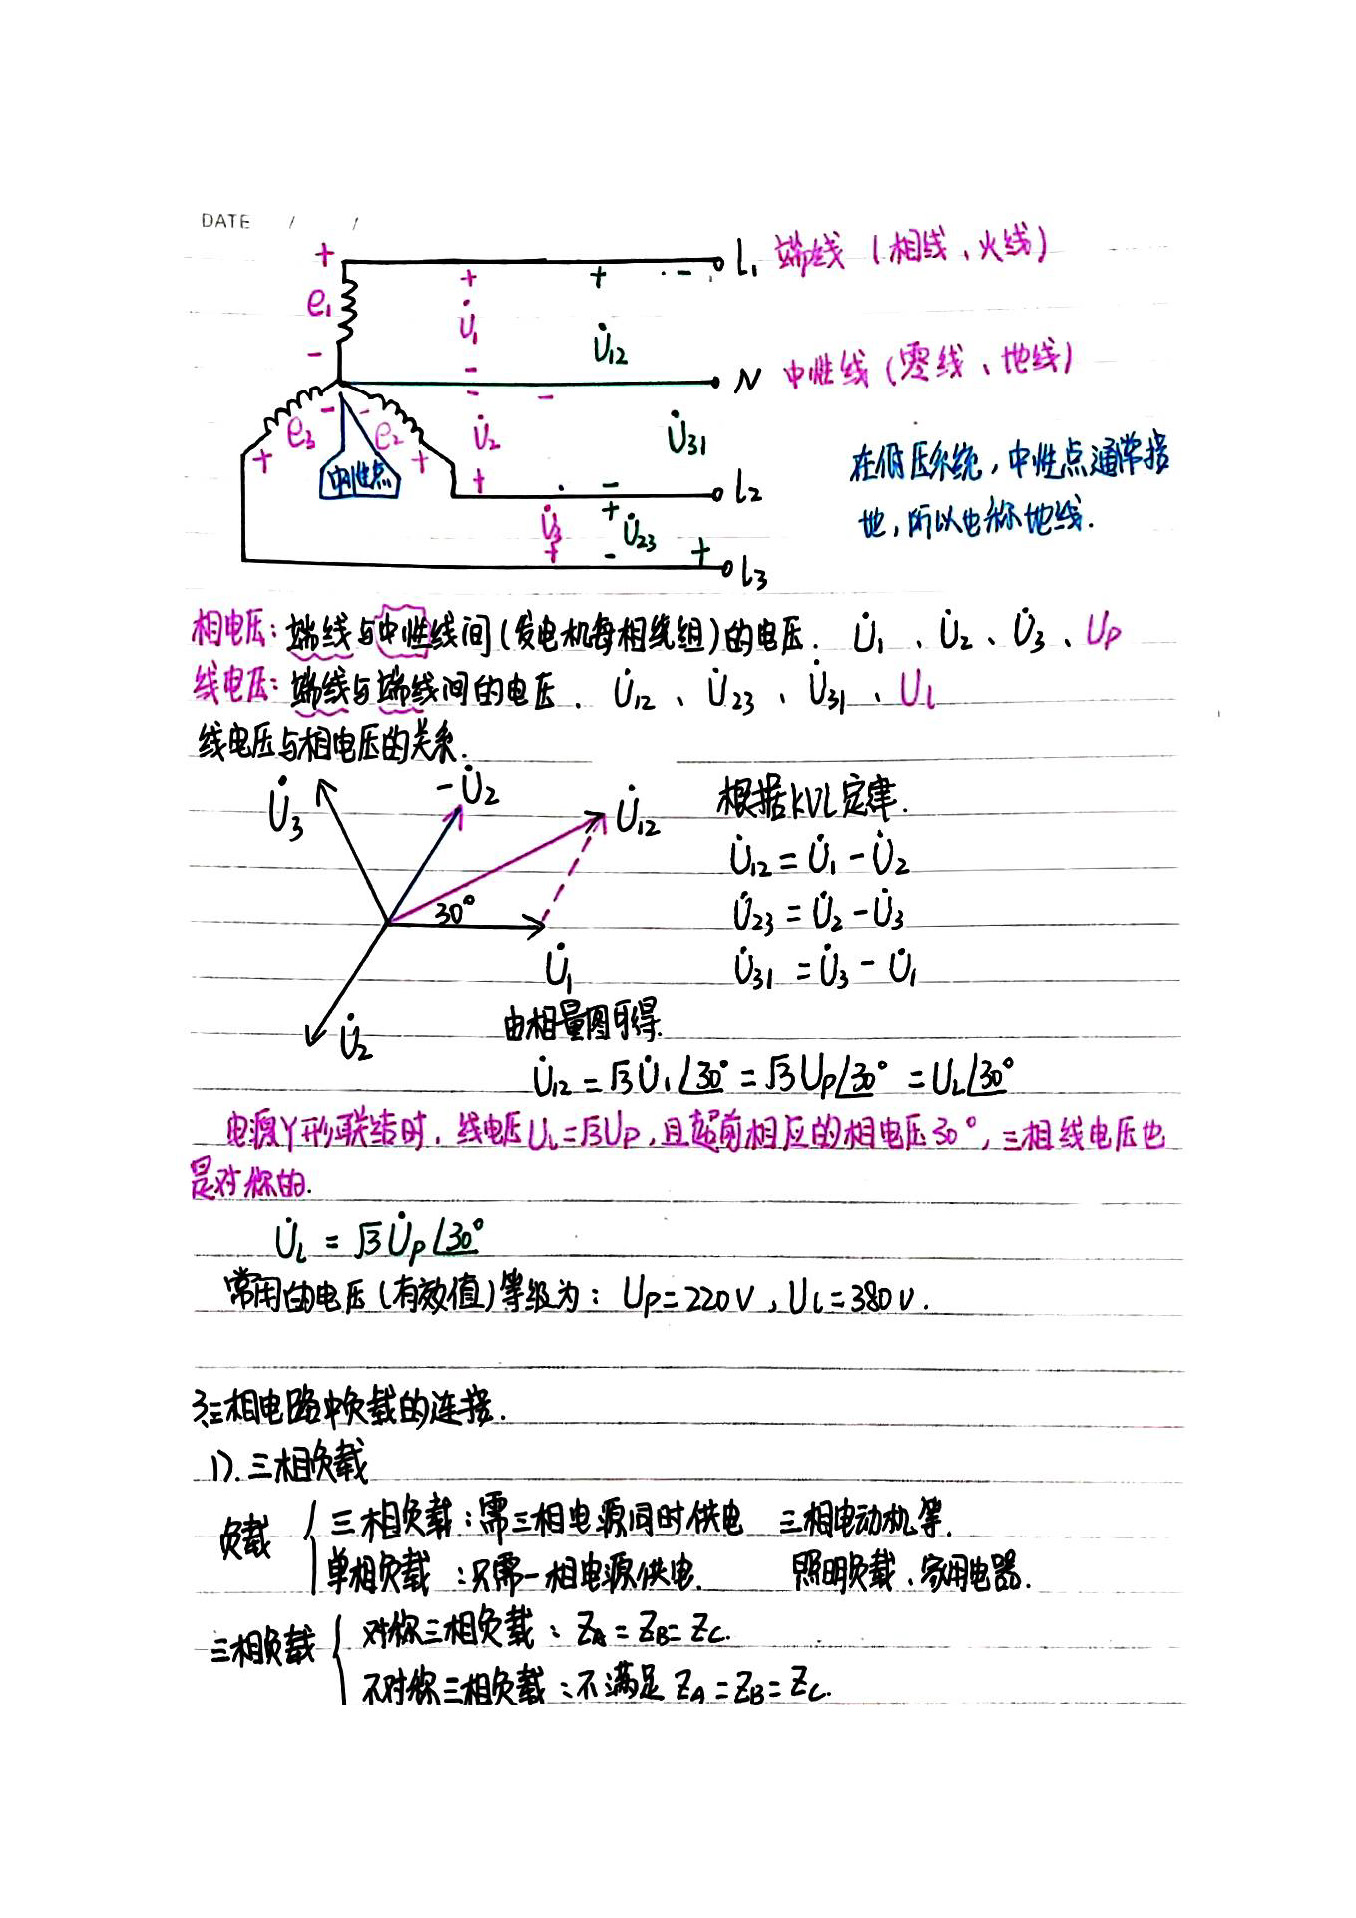 DATE / /
+ L₁ 端线 (相线、火线)
+ + -
e₁ U̇₁ U̇₁₂
- -
N 中性线 (零线、地线)
- - - -
e₃ e₂ U̇₂ U̇₃₁
+ + +
中性点
在低压系统, 中性点通常接
地, 所以也称地线.
- L₂
U̇₃ + U̇₂₃
+ - + L₃
相电压: 端线与中性线间(发电机每相绕组)的电压. U̇₁、U̇₂、U̇₃、Up
线电压: 端线与端线间的电压. U̇₁₂、U̇₂₃、U̇₃₁、UL
线电压与相电压的关系.
U̇₃ -U̇₂ U̇₁₂ 30° U̇₁ U̇₂
根据KVL定律.
U̇₁₂ = U̇₁ - U̇₂
U̇₂₃ = U̇₂ - U̇₃
U̇₃₁ = U̇₃ - U̇₁
由相量图可得.
U̇₁₂ = √3 U̇₁∠30° = √3 Up∠30° = UL∠30°
电源Y形联结时, 线电压UL=√3Up, 且超前相应的相电压30°, 三相线电压也
是对称的.
U̇L = √3 U̇p∠30°
常用的电压(有效值)等级为: Up=220V, UL=380V.
3.三相电路中负载的连接.
1). 三相负载
负载 { 三相负载: 需三相电源同时供电 三相电动机等.
单相负载: 只需一相电源供电. 照明负载、家用电器.
三相负载 { 对称三相负载: ZA = ZB = ZC.
不对称三相负载: 不满足 ZA = ZB = ZC.